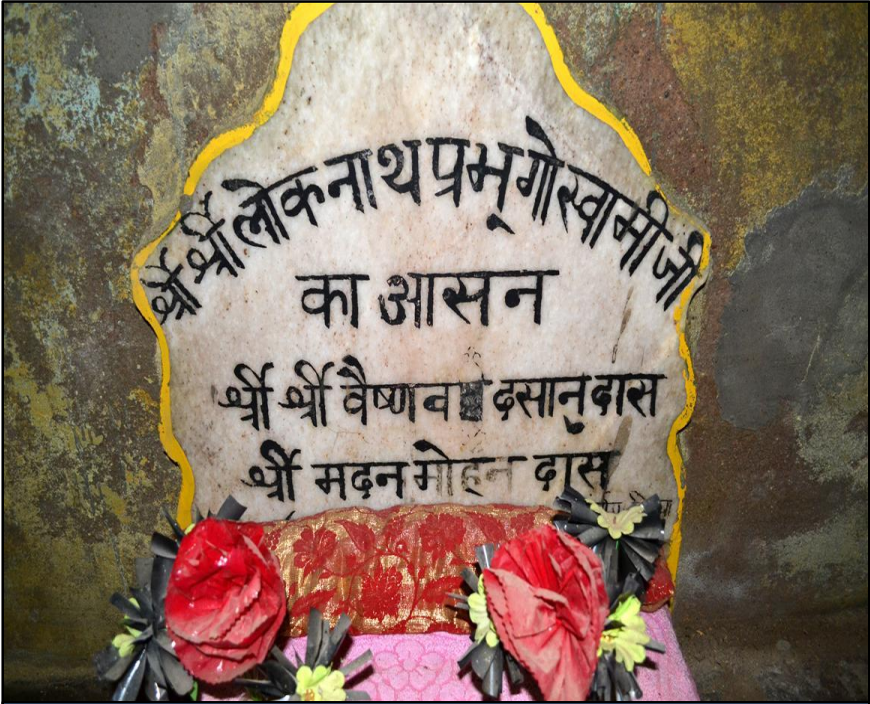 श्री श्री लोकनाथ प्रभु गोस्वामी जी
का आसन
श्री श्री वैष्णव दसानुदास
श्री मदन मोहन दास